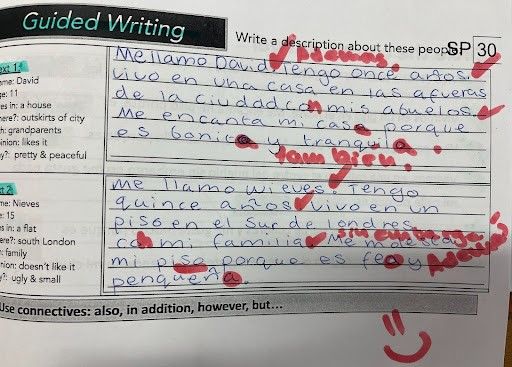 Guided Writing
Write a description about these peop
SP 30
ext 1:
ame: David
ge: 11
es in: a house
here?: outskirts of city
h: grandparents
inion: likes it
y?: pretty & peaceful
Me llamo David Tengo once años.
Además
vivo en una casa en las afueras
de la ciudad con mis abuelos.
Me encanta mi casa porque
es bonita y tranquila.
también.
ext 2:
me: Nieves
e: 15
es in: a flat
ere?: south London
h: family
nion: doesn't like it
y?: ugly & small
Me llamo Nieves. Tengo
quince años vivo en un
piso en el Sur de londres
sin embargo
con mi familia Me molesta
mi piso porque es fea y
Además
penqueña.
Use connectives: also, in addition, however, but...